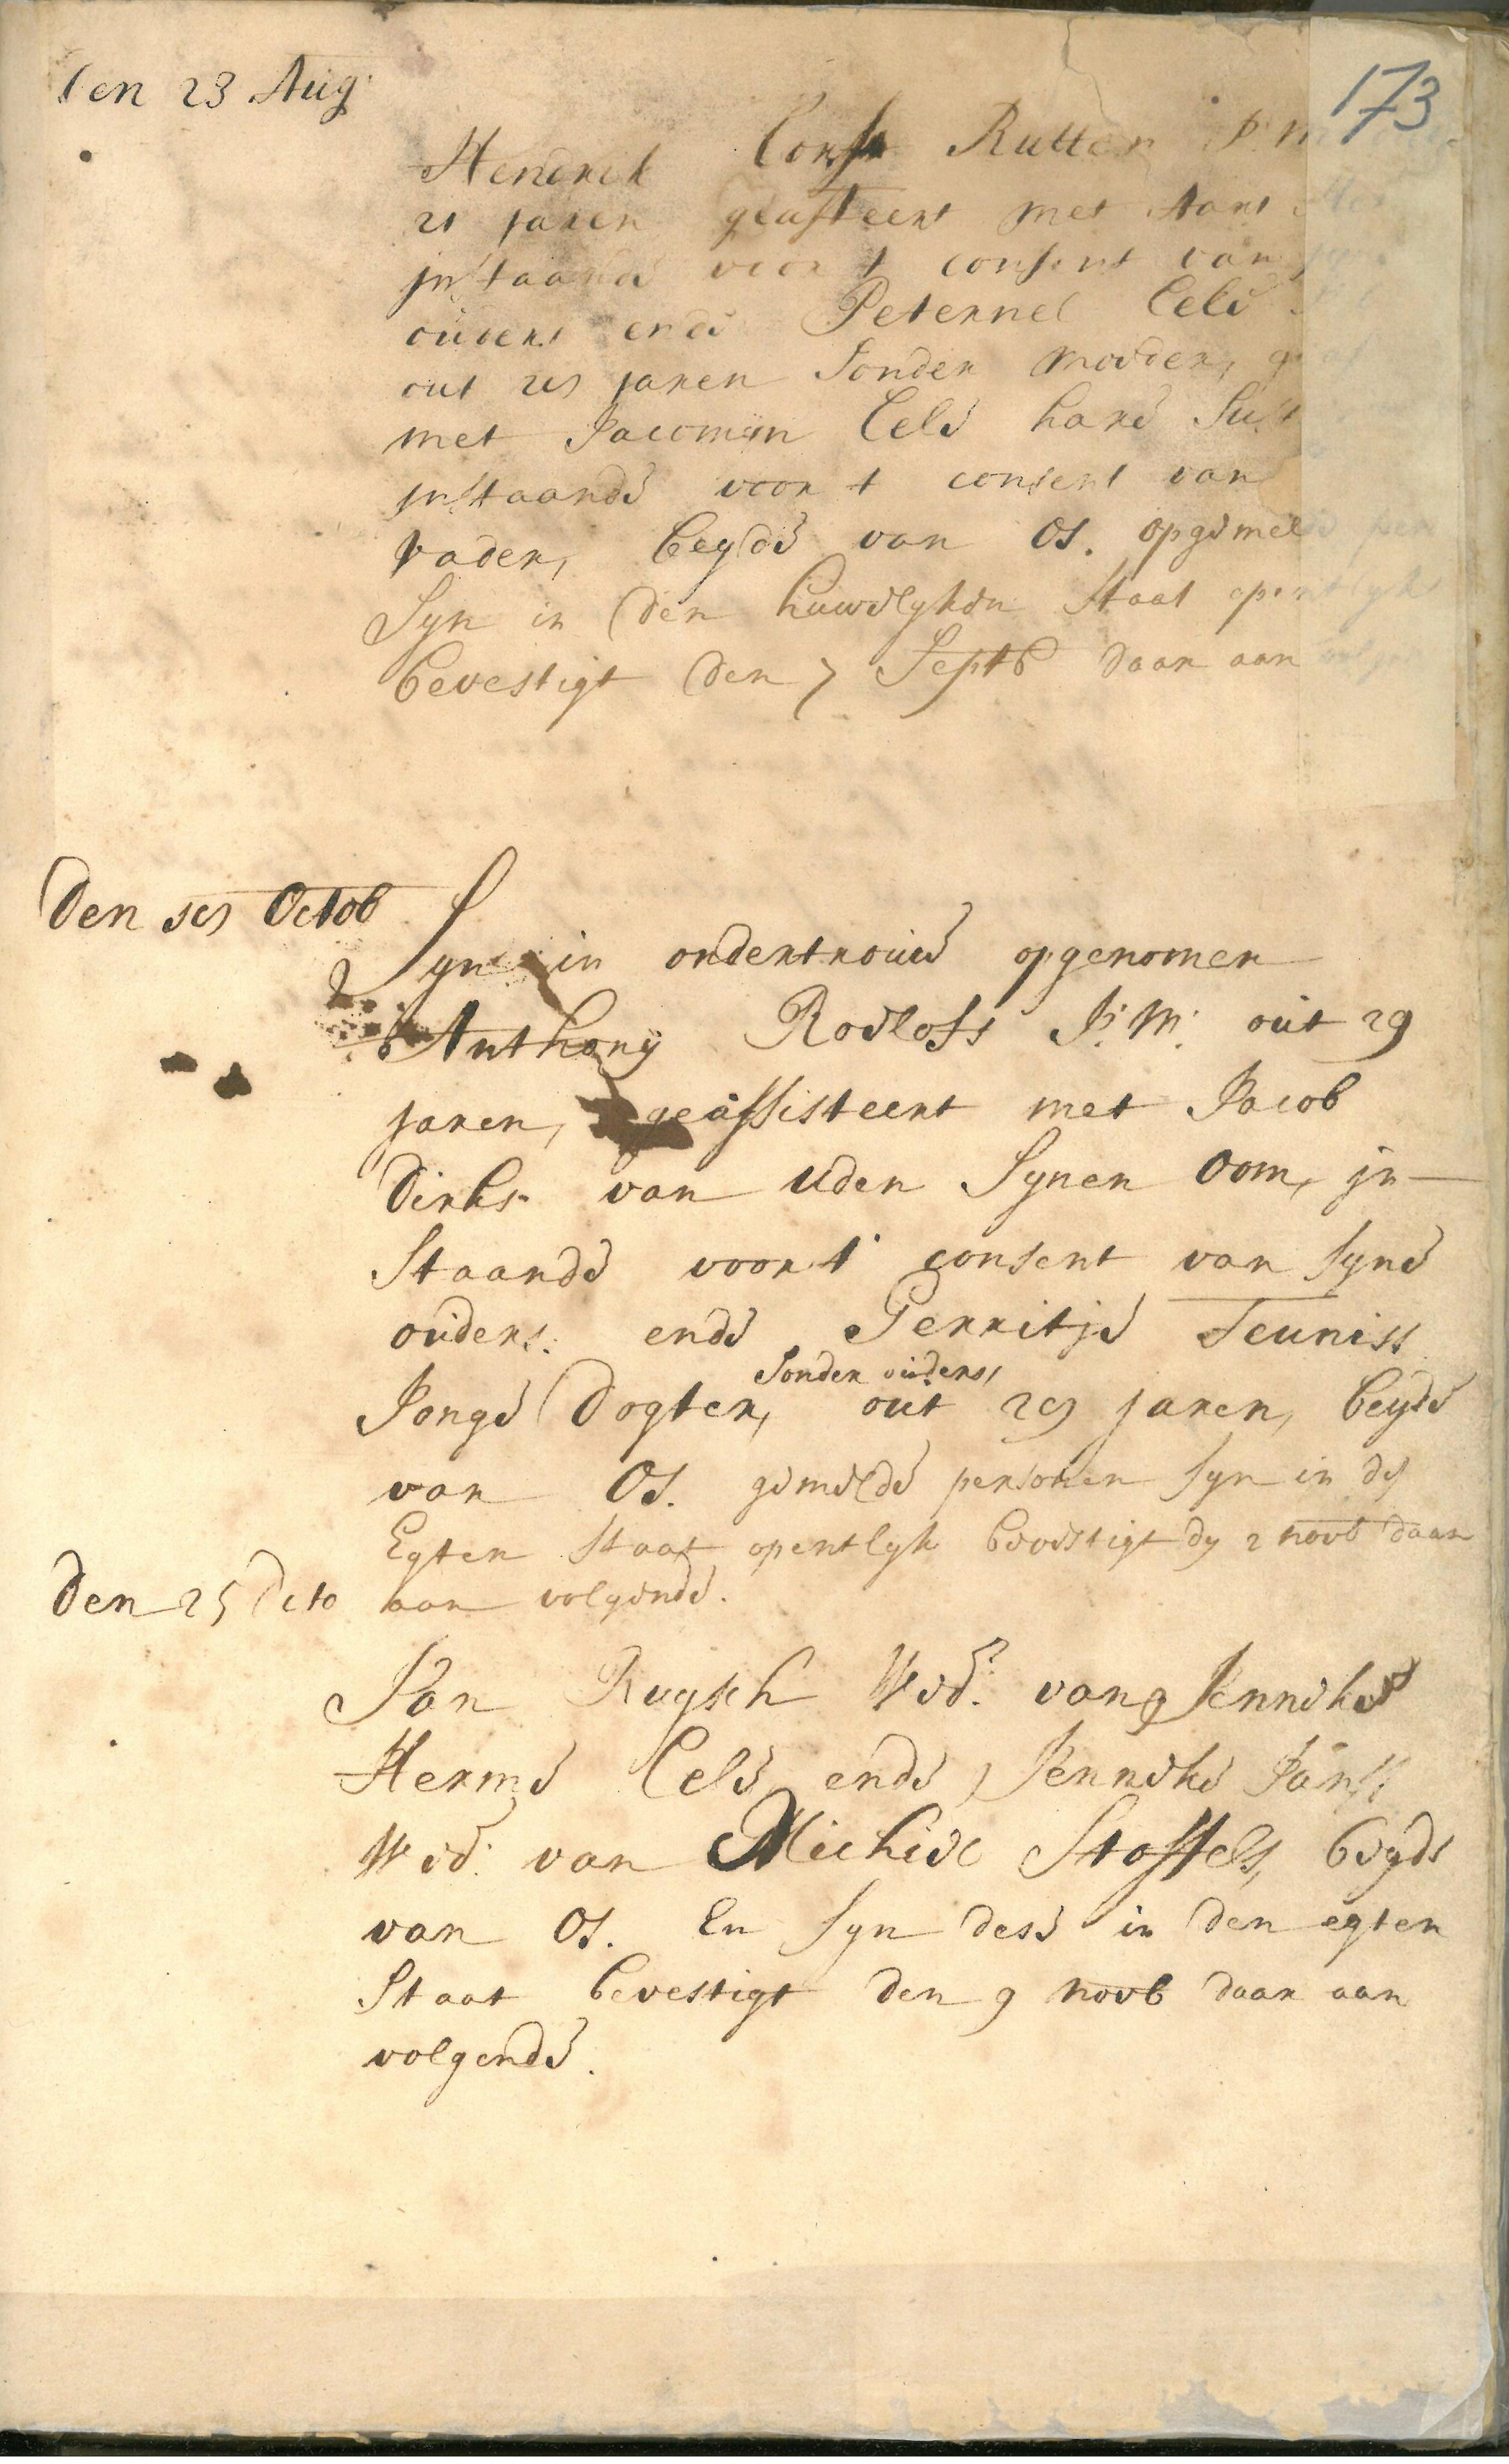 173
den 23 Aug:
Hendrik Cors Rutten J: M
21 jaren geasteert met Aart
jnstaande voor t consent van syne
ouders ende Peternel Cels
out 25 jaren sonder moeder, geas
met Jacomijn Cels hare Sust
jnstaande voor t consent van
vader, beyde van Os. opgemelde per
Syn in den huwelyken Staat opentlyk
bevestigt den 7 Septb daar aan volgen
Den 15 Octob
Syn in ondertrouw opgenomen
Anthony Roelofs J: M: out 29
jaren, geassisteert met Jacob
Dirks van Uden Synen Oom, jn
Staande voor t consent van syne
ouders. ende Gerritje Teuniss
Jonge Dogter, sonder ouders, out 25 jaren, beyde
van Os. gemelde personen syn in de
Egten Staat opentlyk bevestigt de 2 novb daar
aan volgende.
Den 25 Octo
Jan Ruysch Wed: van Jenneke
Herms Cels ende Jenneke Janss
Wed: van Michiel Stoffels, beyde
van Os. En syn dese in den egten
Staat bevestigt den 9 novb daar aan
volgende.